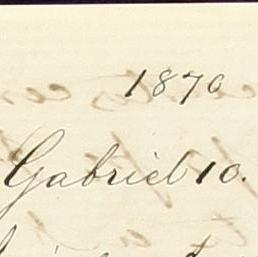 1870
Gabriel 10.